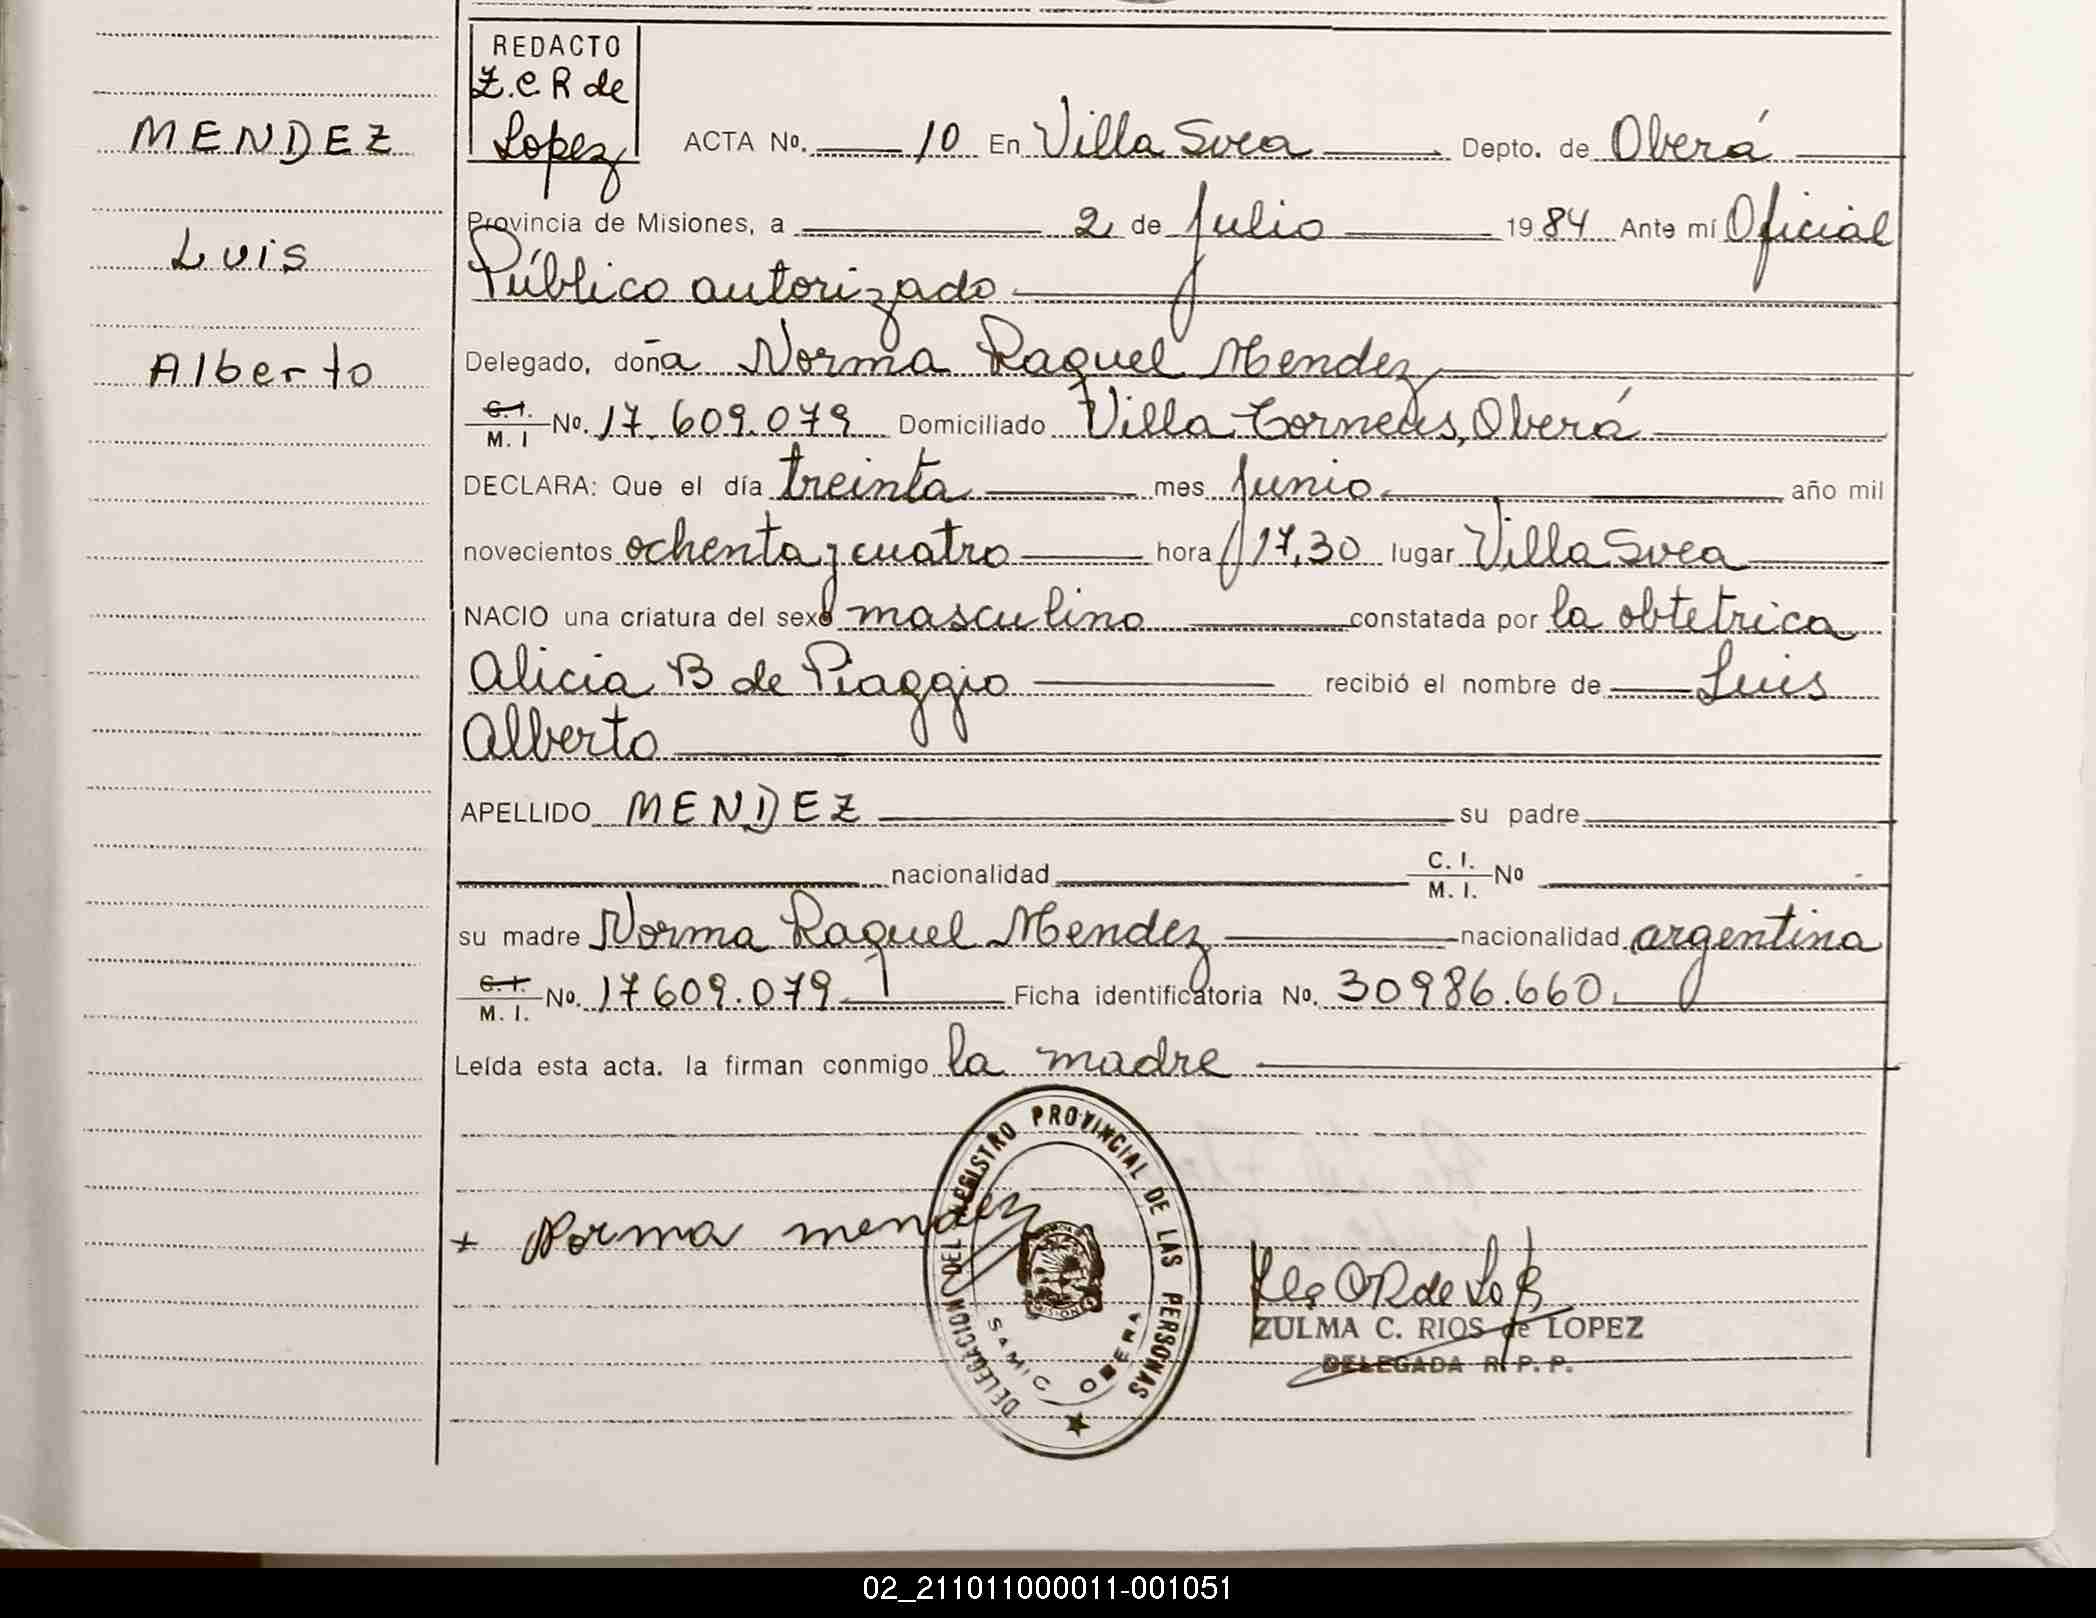 MENDEZ
Luis
Alberto
REDACTO
Z.C R de
Lopez
ACTA No. 10 En Villa Svea Depto. de Oberá
Provincia de Misiones, a 2 de Julio 1984 Ante mí Oficial
Público autorizado
Delegado, doña Norma Raquel Mendez
C.I. M. I No. 17.609.079 Domiciliado Villa Torneus, Oberá
DECLARA: Que el día treinta mes Junio año mil
novecientos ochenta y cuatro hora 17,30 lugar Villa Svea
NACIO una criatura del sexo masculino constatada por la obtetrica
Alicia B de Piaggio recibió el nombre de Luis
Alberto
APELLIDO MENDEZ su padre
nacionalidad C. I. M. I. No
su madre Norma Raquel Mendez nacionalidad argentina
C.I. M. I. No. 17609.079 Ficha identificatoria No. 30986.660.
Leída esta acta. la firman conmigo la madre
DELEGACION DEL REGISTRO PROVINCIAL DE LAS PERSONAS
SAMIC OBERA
MISIONES
+ Norma mendez
ZULMA C. RIOS de LOPEZ
DELEGADA R. P. P.
02_211011000011-001051